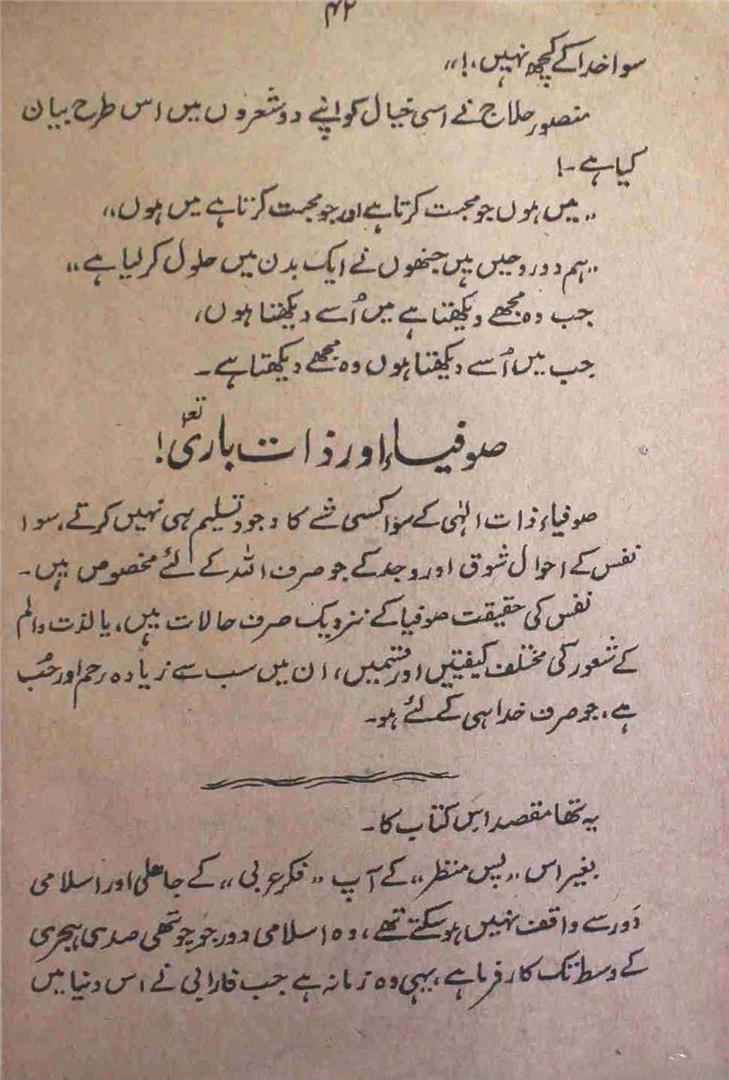 ۴۲
سوا خدا کے کچھ نہیں،!،،
منصور حلاج نے اسی خیال کو اپنے دو شعروں میں اس طرح بیان
کیا ہے۔!
،،میں ہوں جو محبت کرتا ہے اور جو محبت کرتا ہے میں ہوں،،
،،ہم دو روحیں ہیں جنھوں نے ایک بدن میں حلول کر لیا ہے،،
جب وہ مجھے دیکھتا ہے میں اُسے دیکھتا ہوں،
جب میں اُسے دیکھتا ہوں وہ مجھے دیکھتا ہے۔
صوفیاء اور ذات باریؔ تع!
صوفیاء ذات الٰہی کے سوا کسی شے کا وجود تسلیم ہی نہیں کرتے، سوا
نفس کے احوال شوق اور وجد کے جو صرف اللہ کے لئے مخصوص ہیں۔
نفس کی حقیقت صوفیا کے نزدیک صرف حالات ہیں، یا لذت و الم
کے شعور کی مختلف کیفیتیں اور قسمیں، ان میں سب سے زیادہ رحم اور حُب
ہے، جو صرف خدا ہی کے لئے ہو۔
یہ تھا مقصد اس کتاب کا۔
بغیر اس ،،پس منظر،، کے آپ ،،فکر عربی،، کے جاہلی اور اسلامی
دَور سے واقف نہیں ہو سکتے تھے، وہ اسلامی دور جو چوتھی صدی ہجری
کے وسط تک کار فرما ہے، یہی وہ زمانہ ہے جب فارابی نے اس دنیا میں